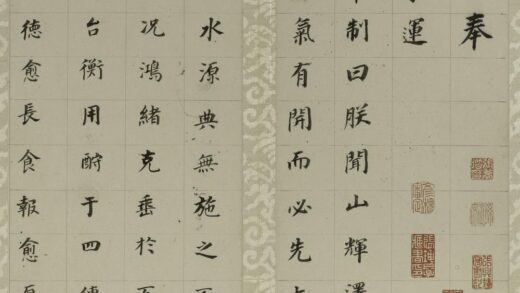 奉
運
制曰朕聞山輝澤
氣有開而必先
水源典無施之
况鴻緒克垂於
台衡用酧于四
德愈長食報愈